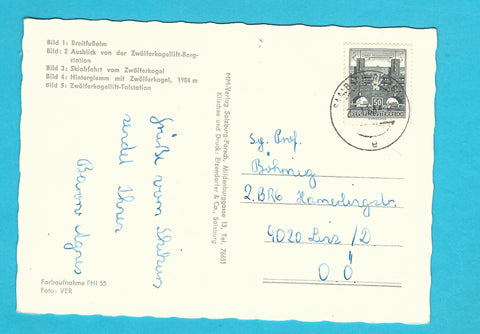 Bild 1: Breitfußalm
Bild: 2 Ausblick von der Zwölferkogellift-Berg-
station
Bild 3: Skiabfahrt vom Zwölferkogel
Bild 4: Hinterglemm mit Zwölferkogel, 1984 m
Bild 5: Zwölferkogellift-Talstation
Grüße vom Skikurs
sendet Ihnen
Agnes
Farbaufnahme FHI 55
Foto: VER
MM-Verlag Salzburg-Parsch, Mildenburggasse 13, Tel. 76651
Klischee und Druck: Etzendorfer & Co., Salzburg
50
REPUBLIK ÖSTERREICH
a
Sg. Prof.
Böhmig
2.BR6 Hamerlingstr.
4020 Linz /D.
OÖ